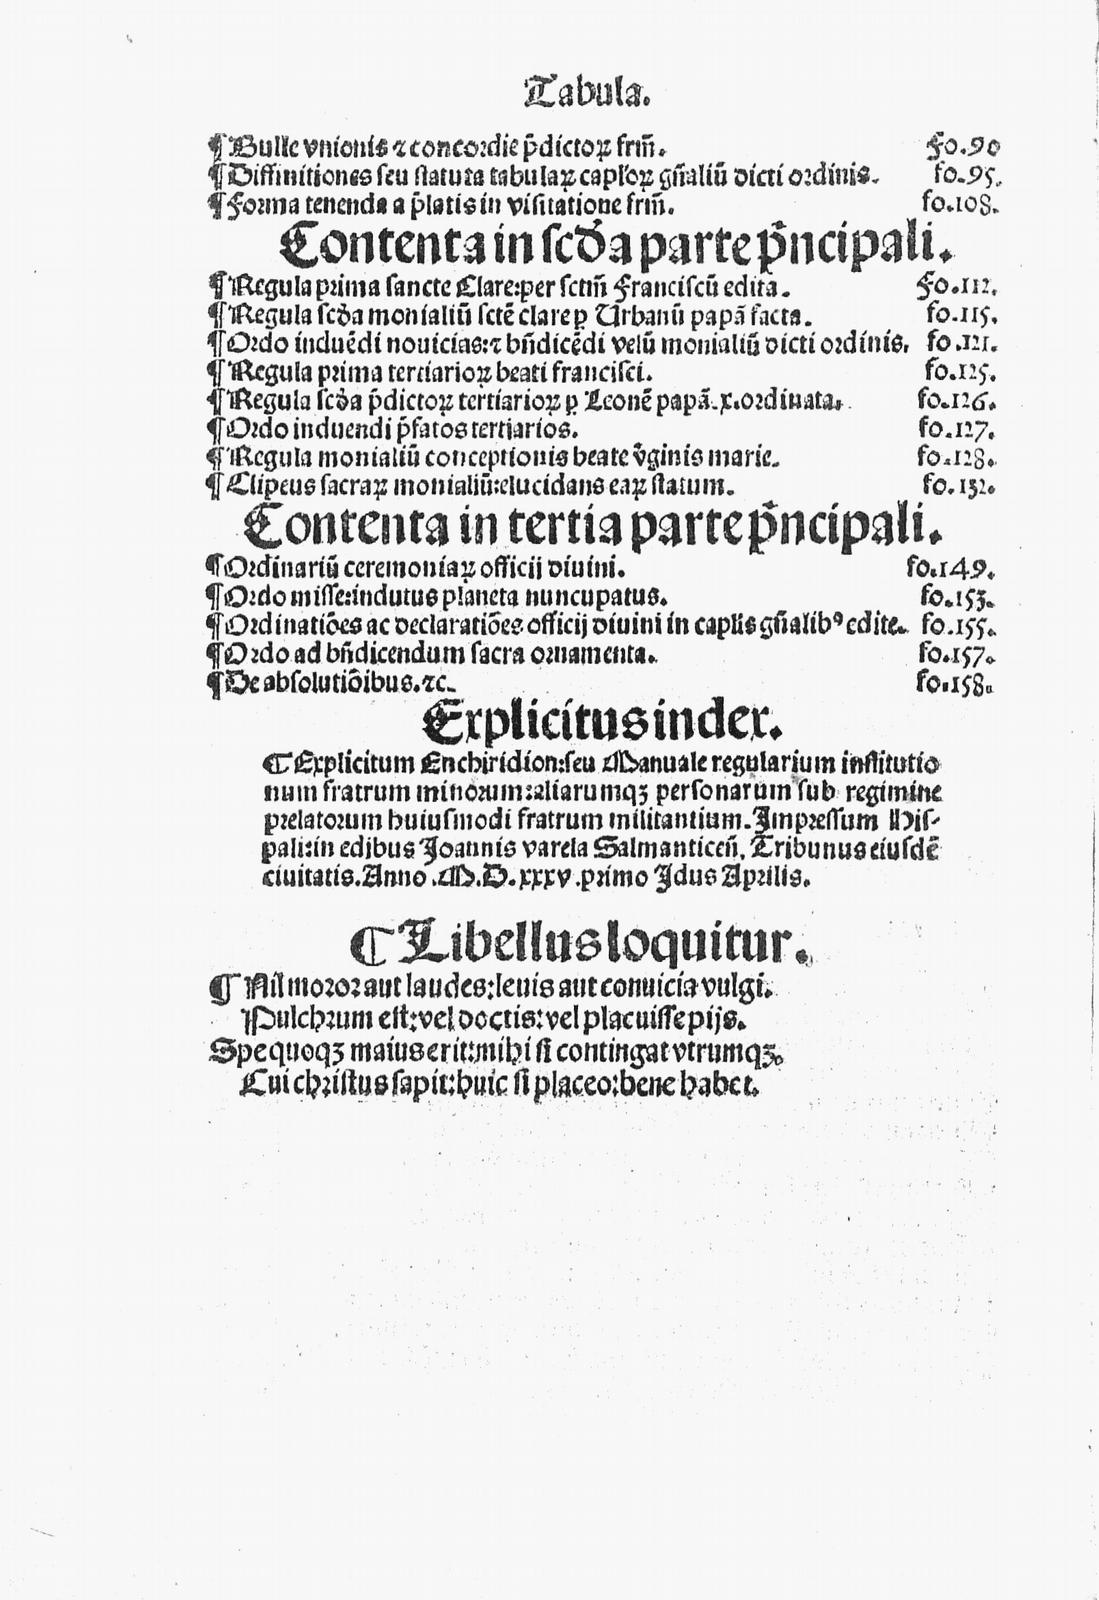 Tabula.
¶Bulle vnionis ⁊ concordie p̄dictoꝝ frm̄. Fo.90
¶Diffinitiones seu statuta tabulaꝝ capl'oꝝ gn̄aliū dicti ordinis. fo.95.
¶Forma tenenda a p̄latis in visitatione frm̄. fo.108.
Contenta in scd̄a parte pn̄cipali.
¶Regula prima sancte Clare:per sctm̄ Franciscū edita. Fo.112.
¶Regula scd̄a monialiū sctē clare ꝑ Urbanū papā facta. fo.115.
¶Ordo induēdi nouicias:⁊ bn̄dicēdi velū monialiū dicti ordinis. fo.121.
¶Regula prima tertiarioꝝ beati francisci. fo.125.
¶Regula scd̄a p̄dictoꝝ tertiarioꝝ ꝑ Leonē papā.x.ordinata. fo.126.
¶Ordo induendi p̄fatos tertiarios. fo.127.
¶Regula monialiū conceptionis beate v̄ginis marie. fo.128.
¶Clipeus sacraꝝ monialiū:elucidans eaꝝ statum. fo.132.
Contenta in tertia parte pn̄cipali.
¶Ordinariū ceremoniaꝝ officij diuini. fo.149.
¶Ordo misse:indutus planeta nuncupatus. fo.153.
¶Ordinatiōes ac declaratiōes officij diuini in caplis gn̄alibꝰ edite. fo.155.
¶Ordo ad bn̄dicendum sacra ornamenta. fo.157.
¶De absolutiōibus.⁊c. fo.158.
Explicitus index.
¶Explicitum Enchiridion:seu Manuale regularium institutio
num fratrum minorum:aliarumqꝫ personarum sub regimine
prelatorum huiusmodi fratrum militantium.Impressum His-
pali:in edibus Joannis varela Salmanticen̄. Tribunus eiusdē
ciuitatis.Anno .M.D.xxxv.primo Idus Aprilis.
¶Libellus loquitur.
¶Nil moror aut laudes:leuis aut conuicia vulgi.
Pulchrum est:vel doctis:vel placuisse pijs.
Spe quoqꝫ maius erit:mihi si contingat vtrumqꝫ.
Cui christus sapit:huic si placeo:bene habet.